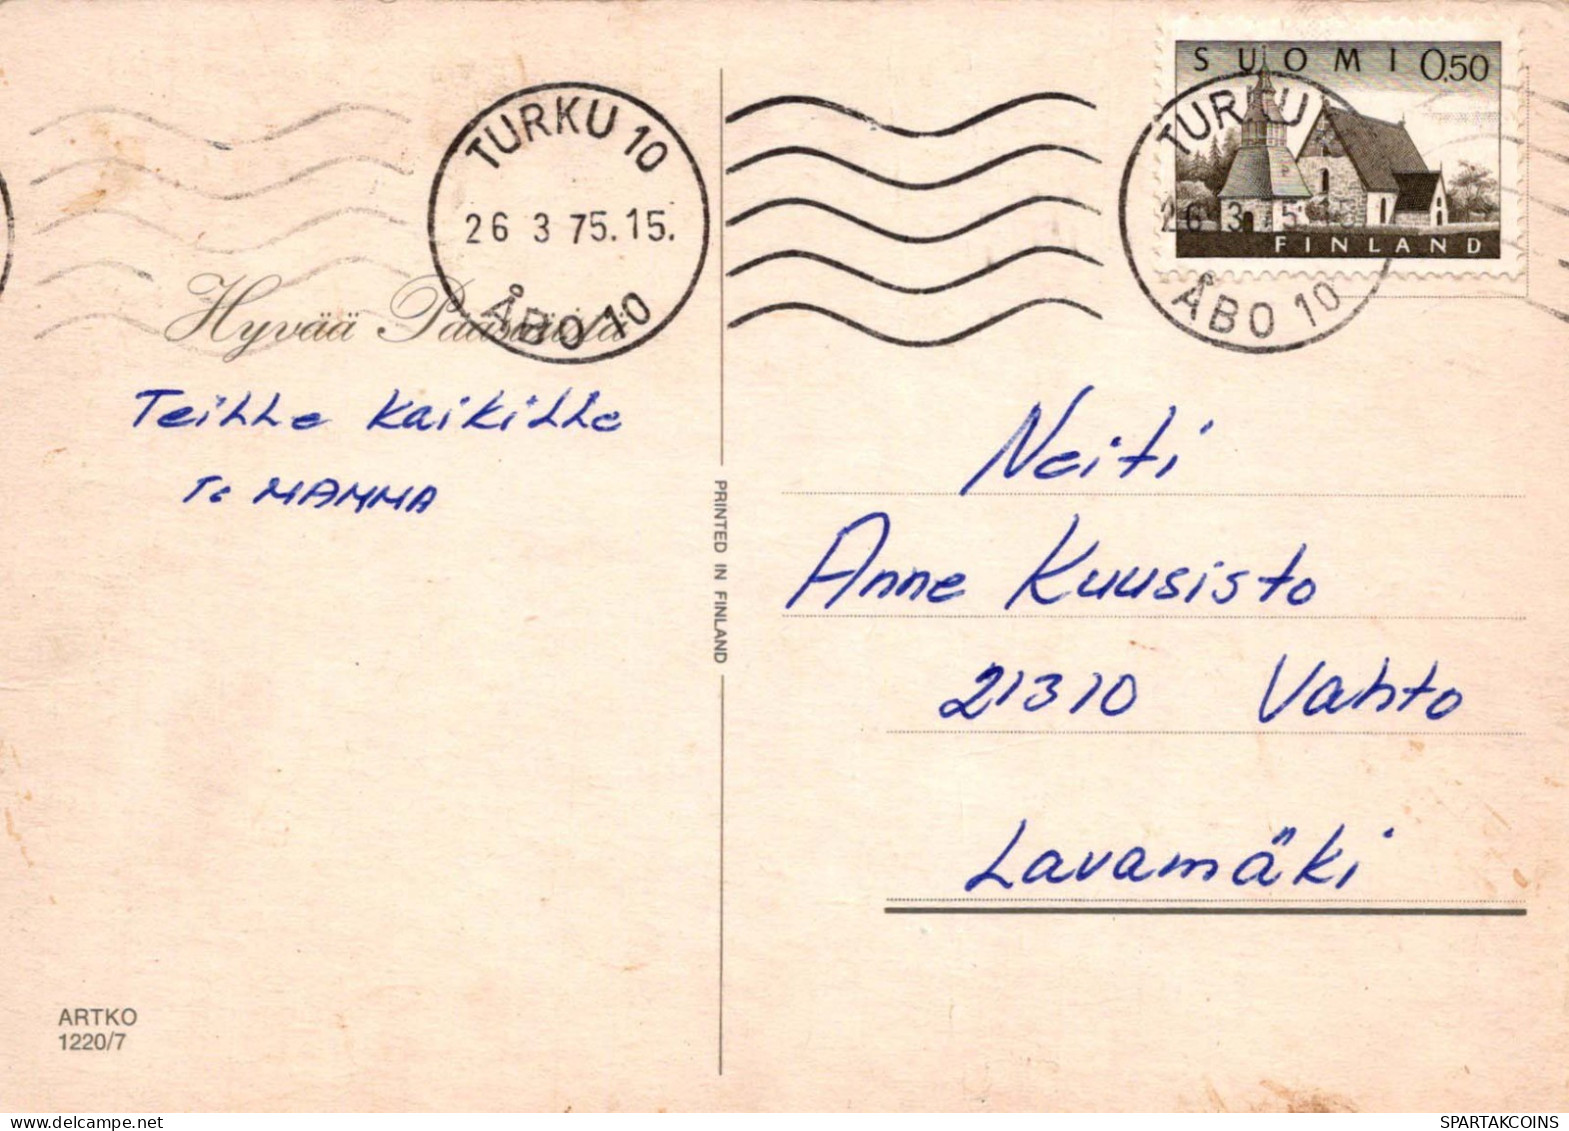 TURKU 10
26 3 75.15.
ÅBO 10
Hyvää Pääsiäistä
Teille kaikille
T: MAMMA
ARTKO
1220/7
PRINTED IN FINLAND
SUOMI 0,50
TURKU
26 3 75.15.
FINLAND
ÅBO 10
Neiti
Anne Kuusisto
21310 Vahto
Lavamäki
SPARTAKCOINS